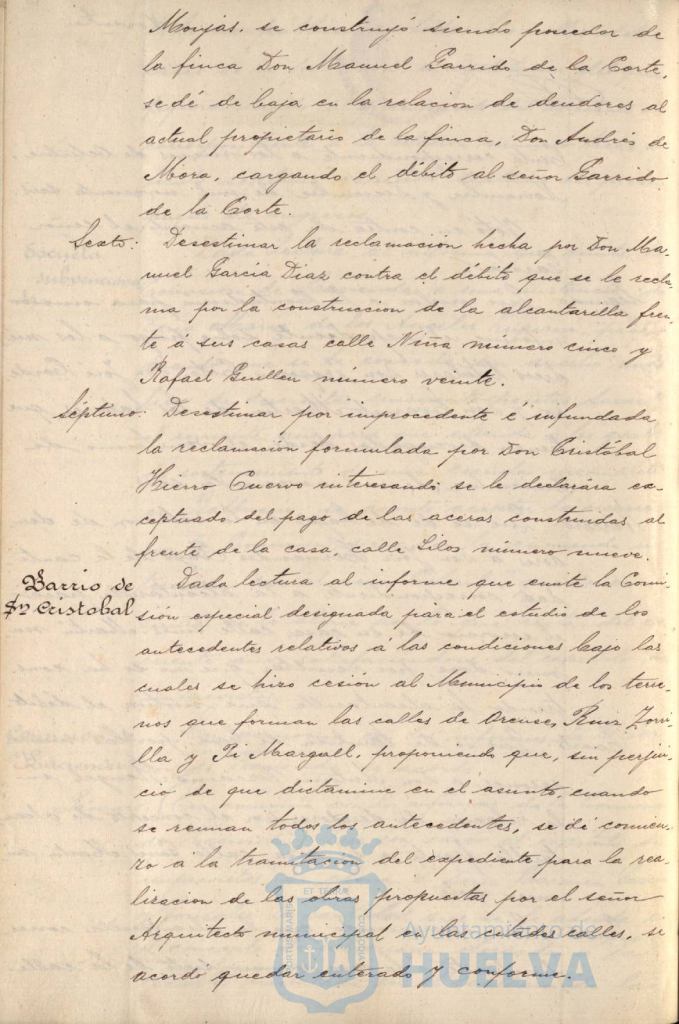 Monjas, se construyó siendo poseedor de
la finca Don Manuel Garrido de la Corte,
se dé de baja en la relacion de deudores al
actual propietario de la finca, Don Andrés de
Mora, cargando el débito al señor Garrido
de la Corte.
Sexto: Desestimar la reclamación hecha por Don Ma-
nuel García Diaz contra el débito que se le recla-
ma por la construccion de la alcantarilla fren-
te á sus casas calle Niña número cinco y
Rafael Guillen número veinte.
Séptimo: Desestimar por improcedente é infundada
la reclamación formulada por Don Cristóbal
Hierro Cuervo interesando se le declarára ex-
ceptuado del pago de las aceras construidas al
frente de la casa, calle Silos número nueve.
Barrio de
Sn Cristobal
Dada lectura al informe que emite la Comi-
sión especial designada para el estudio de los
antecedentes relativos á las condiciones bajo las
cuales se hizo cesión al Municipio de los terre-
nos que forman las calles de Orense, Ruiz Zorri-
lla y Pi Margall, proponiendo que, sin perjui-
cio de que dictamine en el asunto, cuando
se reunan todos los antecedentes, se dé comien-
zo á la tramitacion del expediente para la rea-
lizacion de las obras propuestas por el señor
Arquitecto municipal en las citades calles, se
acordó quedar enterado y conforme.
Ayuntamiento de
HUELVA